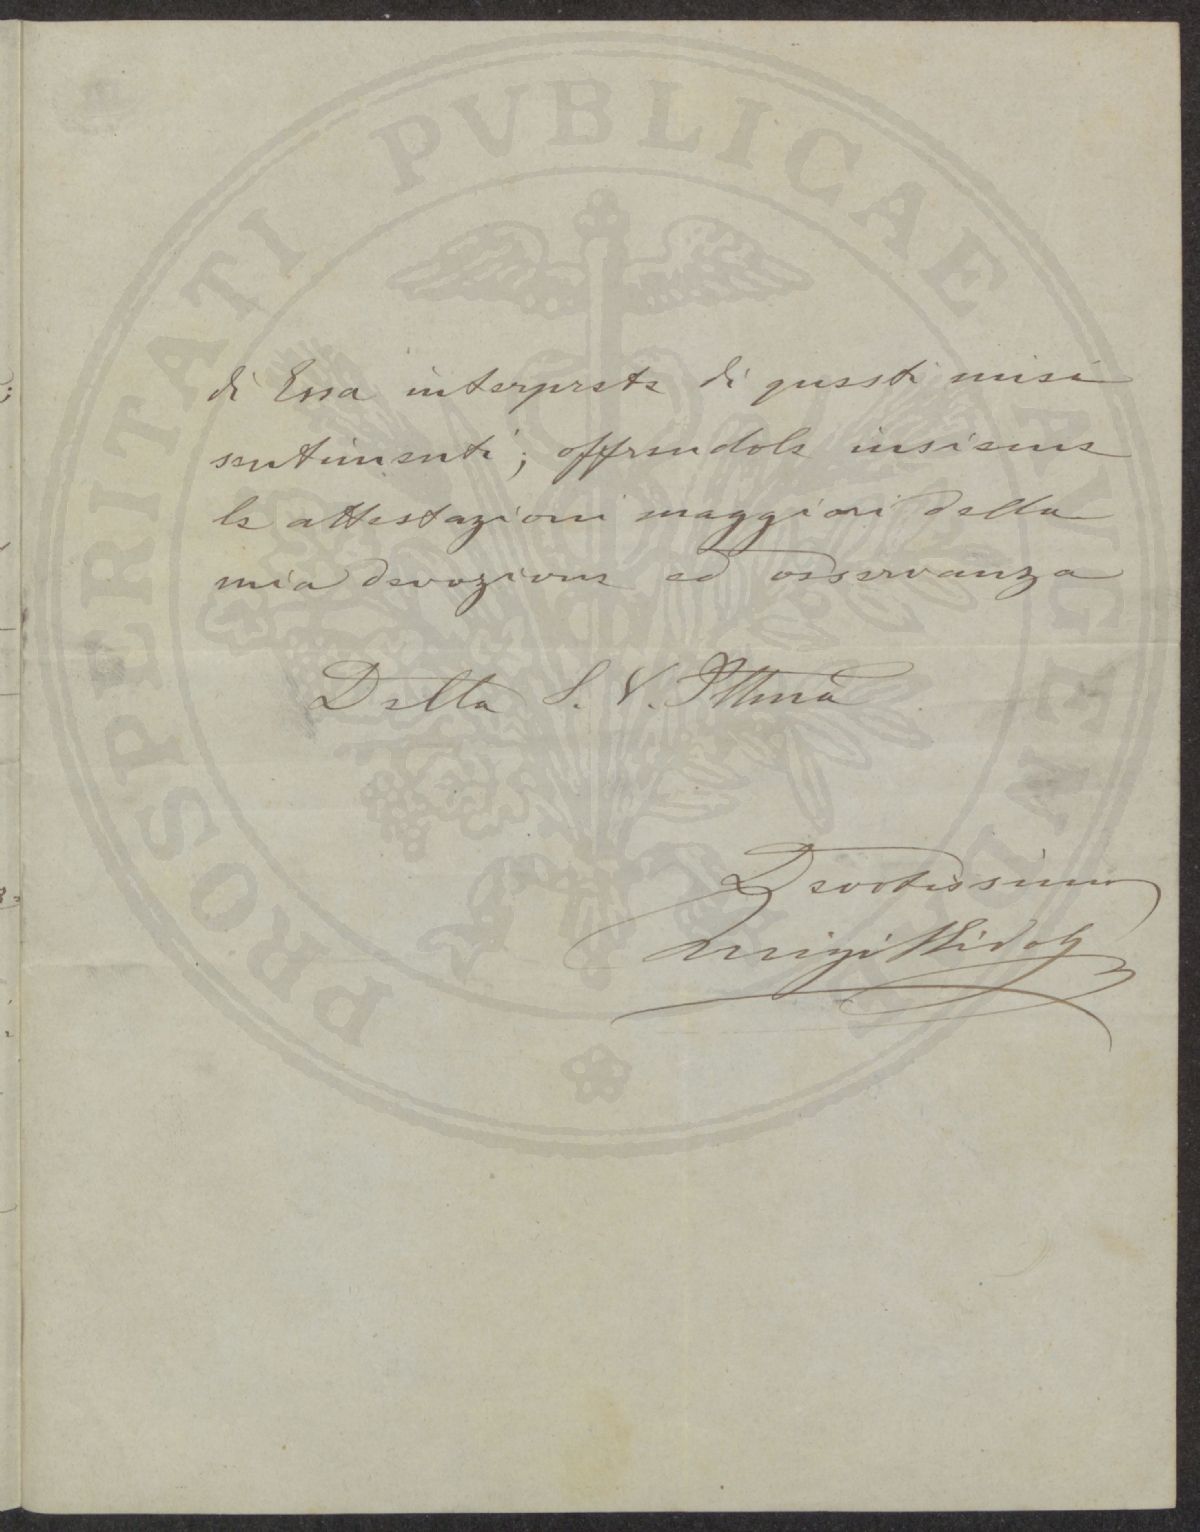 di Essa interprete di questi miei
sentimenti; offrendole insieme
le attestazioni maggiori della
mia devozione ed osservanza
Della S. V. Illma
Devotissimo
Luigi Ridolfi
PROSPERITATI PVBLICAE AVGENDAE